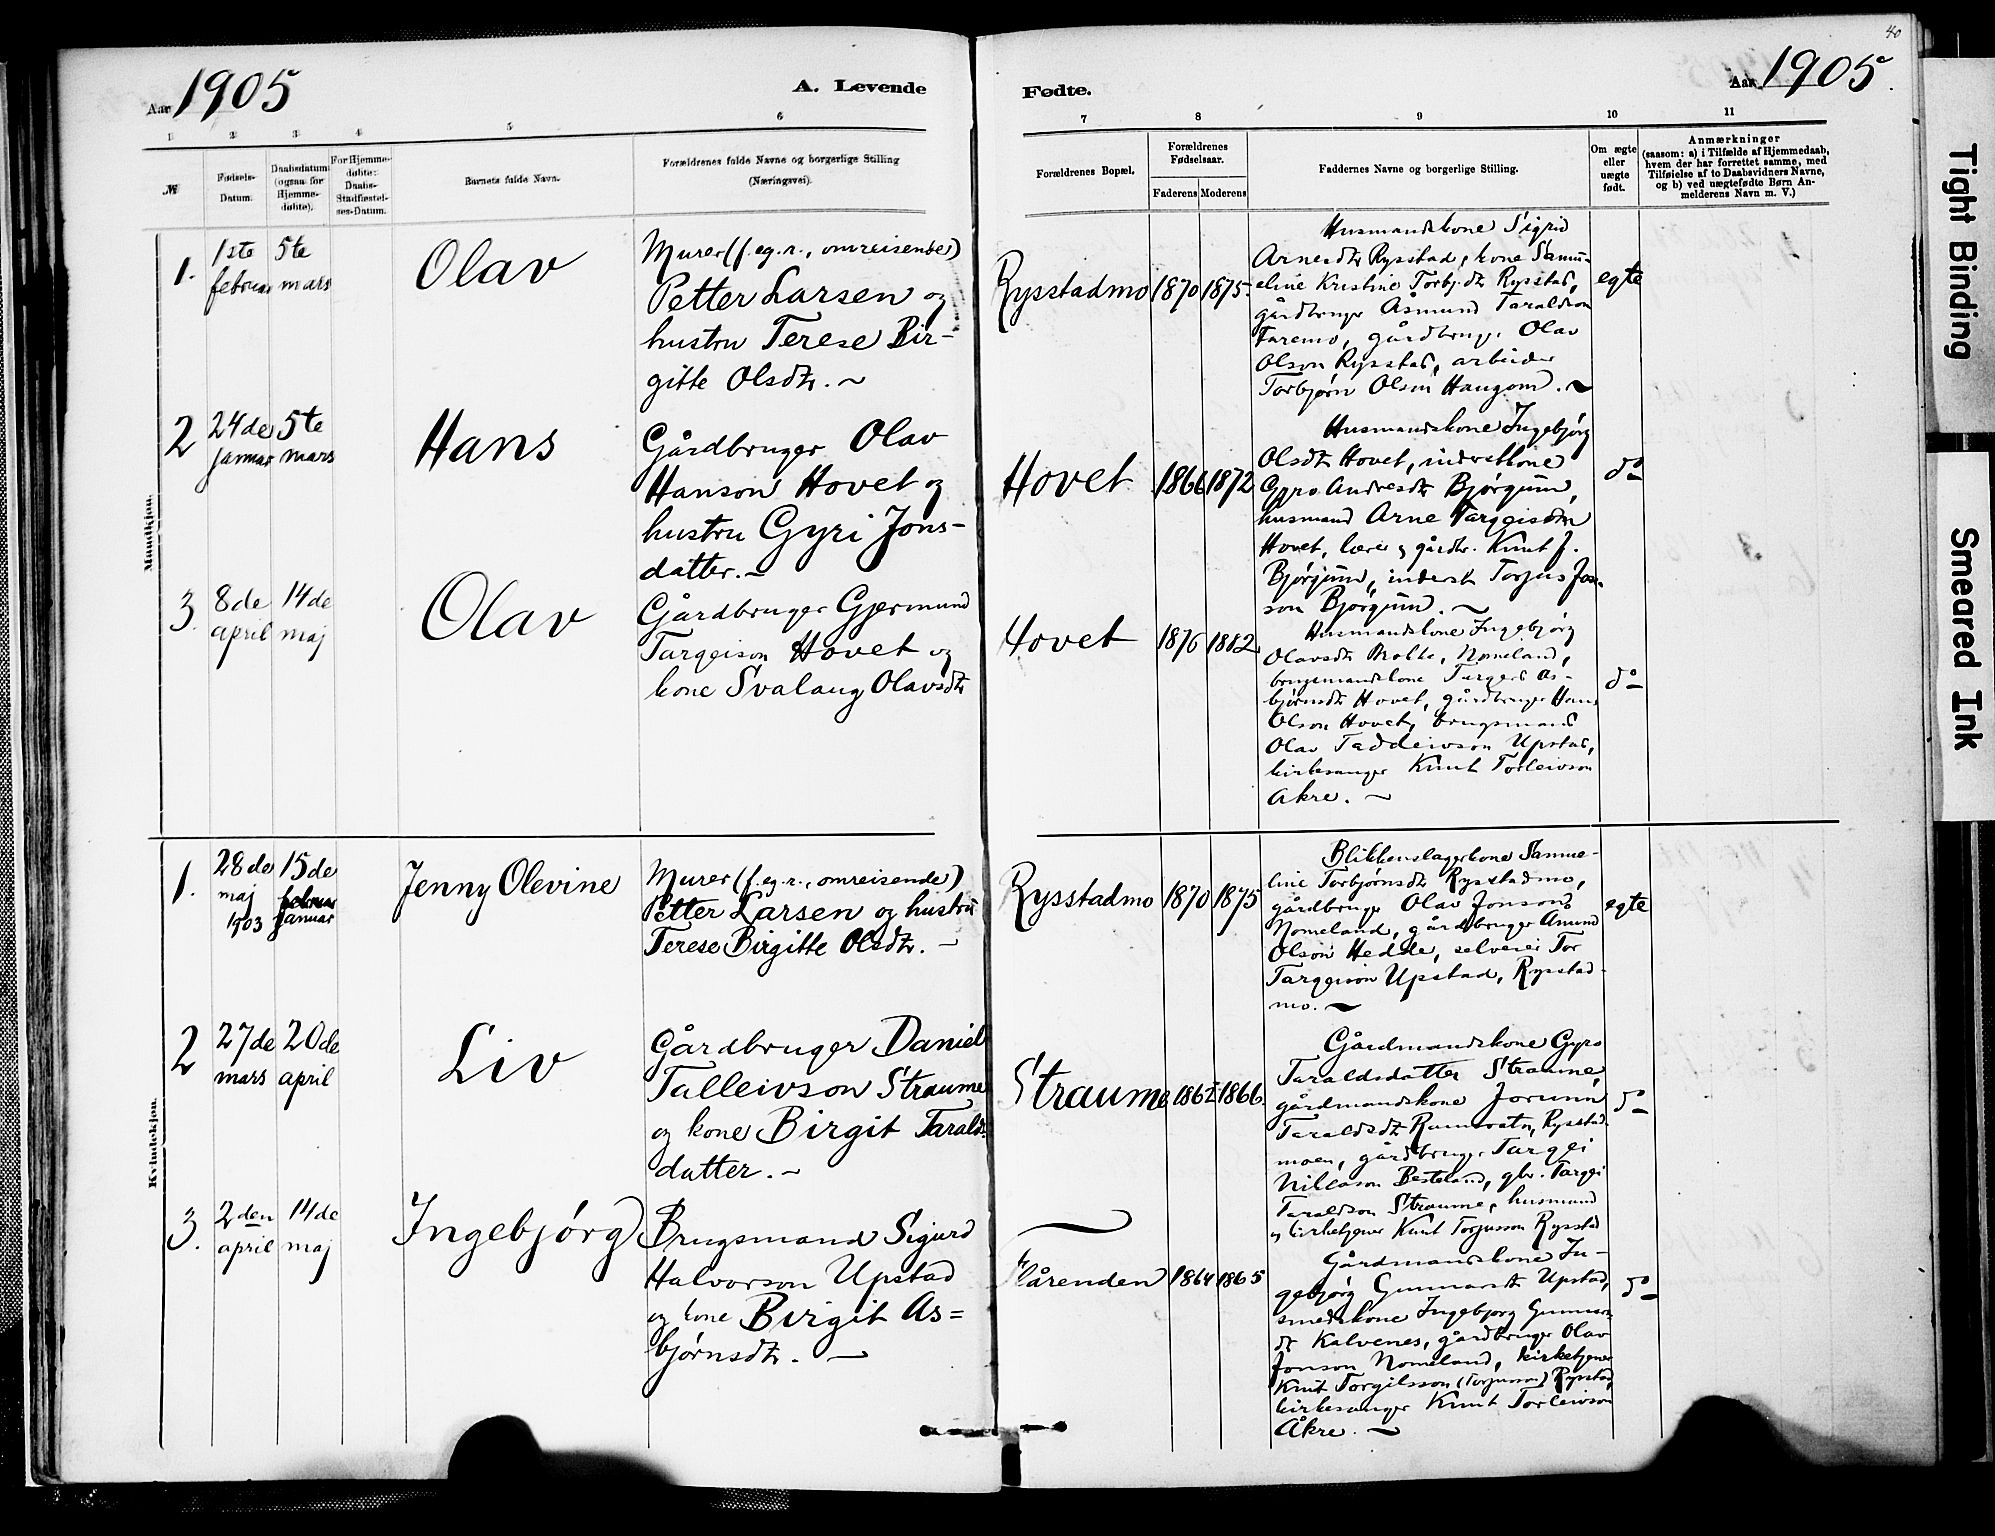 40
Aar 1905
A. Levende
Fødte.
Aar 1905.
1 2 3 4 5 6 7 8 9 10 11
№
Fødsels-
Datum.
Daabsdatum
(ogsaa for
Hjemme-
døbte).
For Hjemme-
døbte:
Daabs-
Stadfæstel-
ses-Datum.
Barnets fulde Navn.
Forældrenes fulde Navne og borgerlige Stilling
(Næringsvei).
Forældrenes Bopæl.
Forældrenes
Fødselsaar.
Faderens Moderens
Faddernes Navne og borgerlige Stilling.
Om ægte
eller
uægte
født.
Anmærkninger
(saasom: a) i Tilfælde af Hjemmedaab,
hvem der har forrettet samme, med
Tilføielse af to Daabsvidners Navne,
og b) ved uægtefødte Børn An-
melderens Navn m. V.)
Mandkjøn.
1.
1ste
februar
5te
mars
Olav
Murer (f. eg. r., omreisende)
Petter Larsen og
hustru Terese Bir-
gitte Olsdtr. ~
Rysstadmo
1870
1875.
Husmandskone Sigrid
Arnesdtr Rysstad, kone Samu-
eline Kristine Torbj.dtr Rysstad,
gårdbruger Åsmund Taraldson
Faremo, gårdbruger Olav
Olson Rysstad, arbeider
Torbjørn Olson Haugom. ~
egte
2
24de
januar
5te
mars
Hans
Gårdbruger Olav
Hanson Hovet og
hustru Gyri Jons-
datter. ~
Hovet
1866
1872
Husmandskone Ingebjørg
Olsdtr Hovet, inderstkone
Gyro Andresdtr Bjørgum,
husmand Arne Targeison
Hovet, lærer og gårdbr. Knut J.
Bjørgum, inderst Torjus Jon-
son Bjørgum. ~
do
3.
8de
april
14de
maj
Olav
Gårdbruger Gjermund
Targeison Hovet og
kone Svalaug Olavsdtr
Hovet
1876
1882
Husmandskone Ingebjørg
Olavsdtr Brotte, Nomeland,
brugsmandskone Targerd As-
bjørnsdtr Hovet, gårdbruger Hans
Olson Hovet, brugsmand
Olav Taddeivson Upstad,
kirkesanger Knut Torleivson
Åkre. ~
do
Kvindekjøn.
1.
28de
maj
1903
15de
februar
januar
Jenny Olevine
Murer (f. eg. r., omreisende)
Petter Larsen og hustru
Terese Birgitte Olsdtr. ~
Rysstadmo
1870
1875
Blikkenslagerkone Samue-
line Torbjørnsdtr Rysstadmo,
gårdbruger Olav Jonson
Nomeland, gårdbruger Åmund
Olson Hedde, selveier Tor
Targeison Upstad, Rysstad-
mo. ~
egte
2
27de
mars
20de
april
Liv
Gårdbruger Daniel
Talleivson Straume
og kone Birgit Taralds-
datter. ~
Straume
1862
1866.
Gårdmandskone Gyro
Taraldsdatter Straume,
gårdmandskone Jorunn
Taraldsdtr Rysstad-
moen, gårdbruger Targei
Nilsson Besteland, gbr. Targei
Taraldson Straume, husmand
og kirketjener Knut Torjusson Rysstad
do
3.
2den
april
14de
maj
Ingebjørg
Brugsmand Sigurd
Halvorson Upstad
og kone Birgit As=
bjørnsdtr. ~
Flårenden
1864
1865
Gårdmandskone In-
gebjørg Gunnarsdtr Upstad,
smedskone Ingebjørg Gunnars-
dtr Kalvenes, gårdbruger Olav
Jonson Nomeland, kirketjener
Knut Torgilsson (Torjusson) Rysstad,
kirkesanger Knut Torleivson
Åkre. ~
do
Tight Binding
Smeared Ink